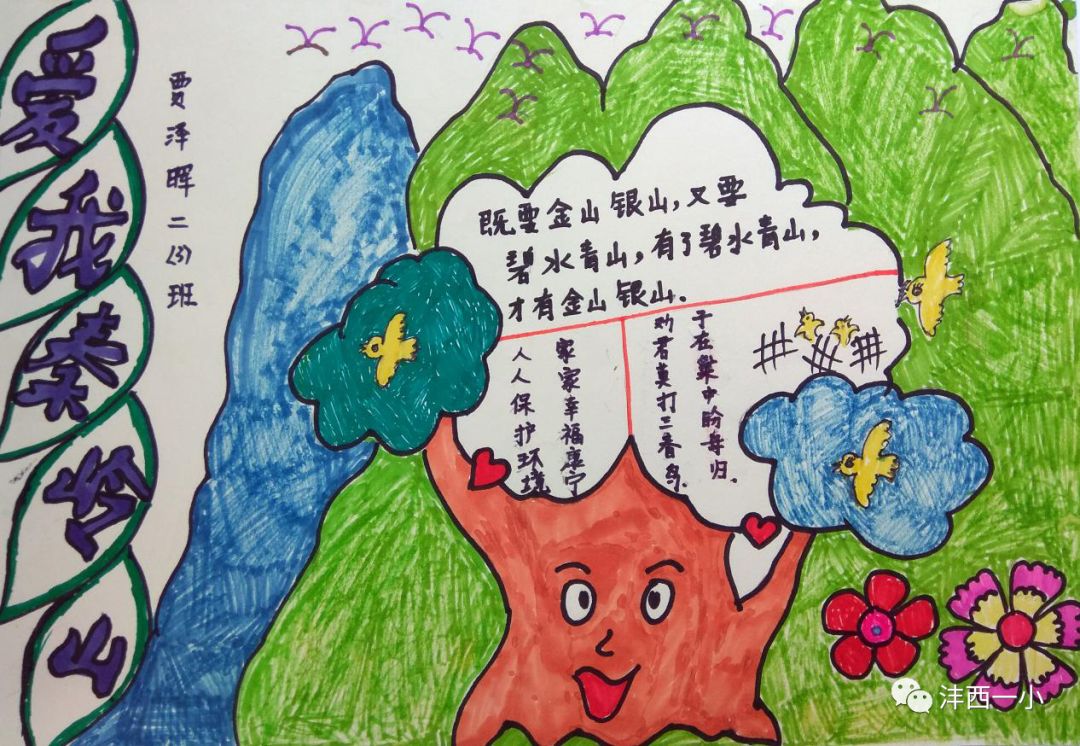 爱我秦岭山
贾泽晖二(3)班
既要金山银山,又要
碧水青山,有了碧水青山,
才有金山银山.
人人保护环境
家家幸福康宁
劝君莫打三春鸟.
子在巢中盼母归.
沣西一小